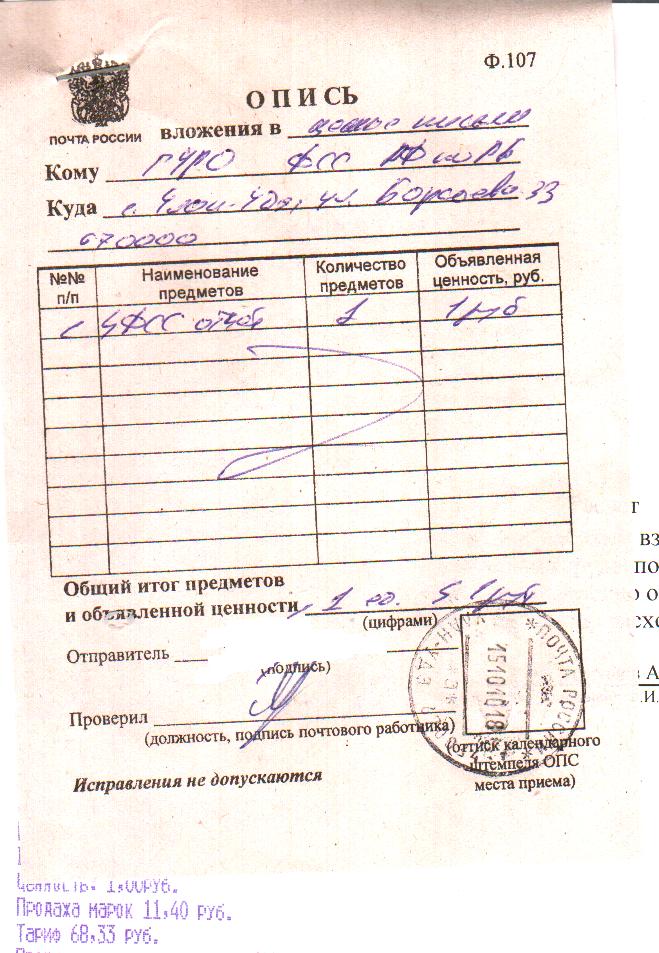 Ф.107
ОПИСЬ
ПОЧТА РОССИИ
вложения в ценное письмо
Кому ГУРО ФСС РФ по РБ
Куда г. Улан-Удэ, ул. Борсоева 33
670000
№№ п/п
Наименование предметов
Количество предметов
Объявленная ценность, руб.
4ФСС отчёт 1 1 руб
Общий итог предметов
и объявленной ценности 1
(цифрами)
Отправитель
(подпись)
Проверил
(должность, подпись почтового работника)
(оттиск календарного
штемпеля ОПС
места приема)
Исправления не допускаются
ПОЧТА РОССИИ
УЛАН-УДЭ
15101018
Ценность: 1,00РУБ.
Продажа марок 11,40 руб.
Тариф 68,33 руб.